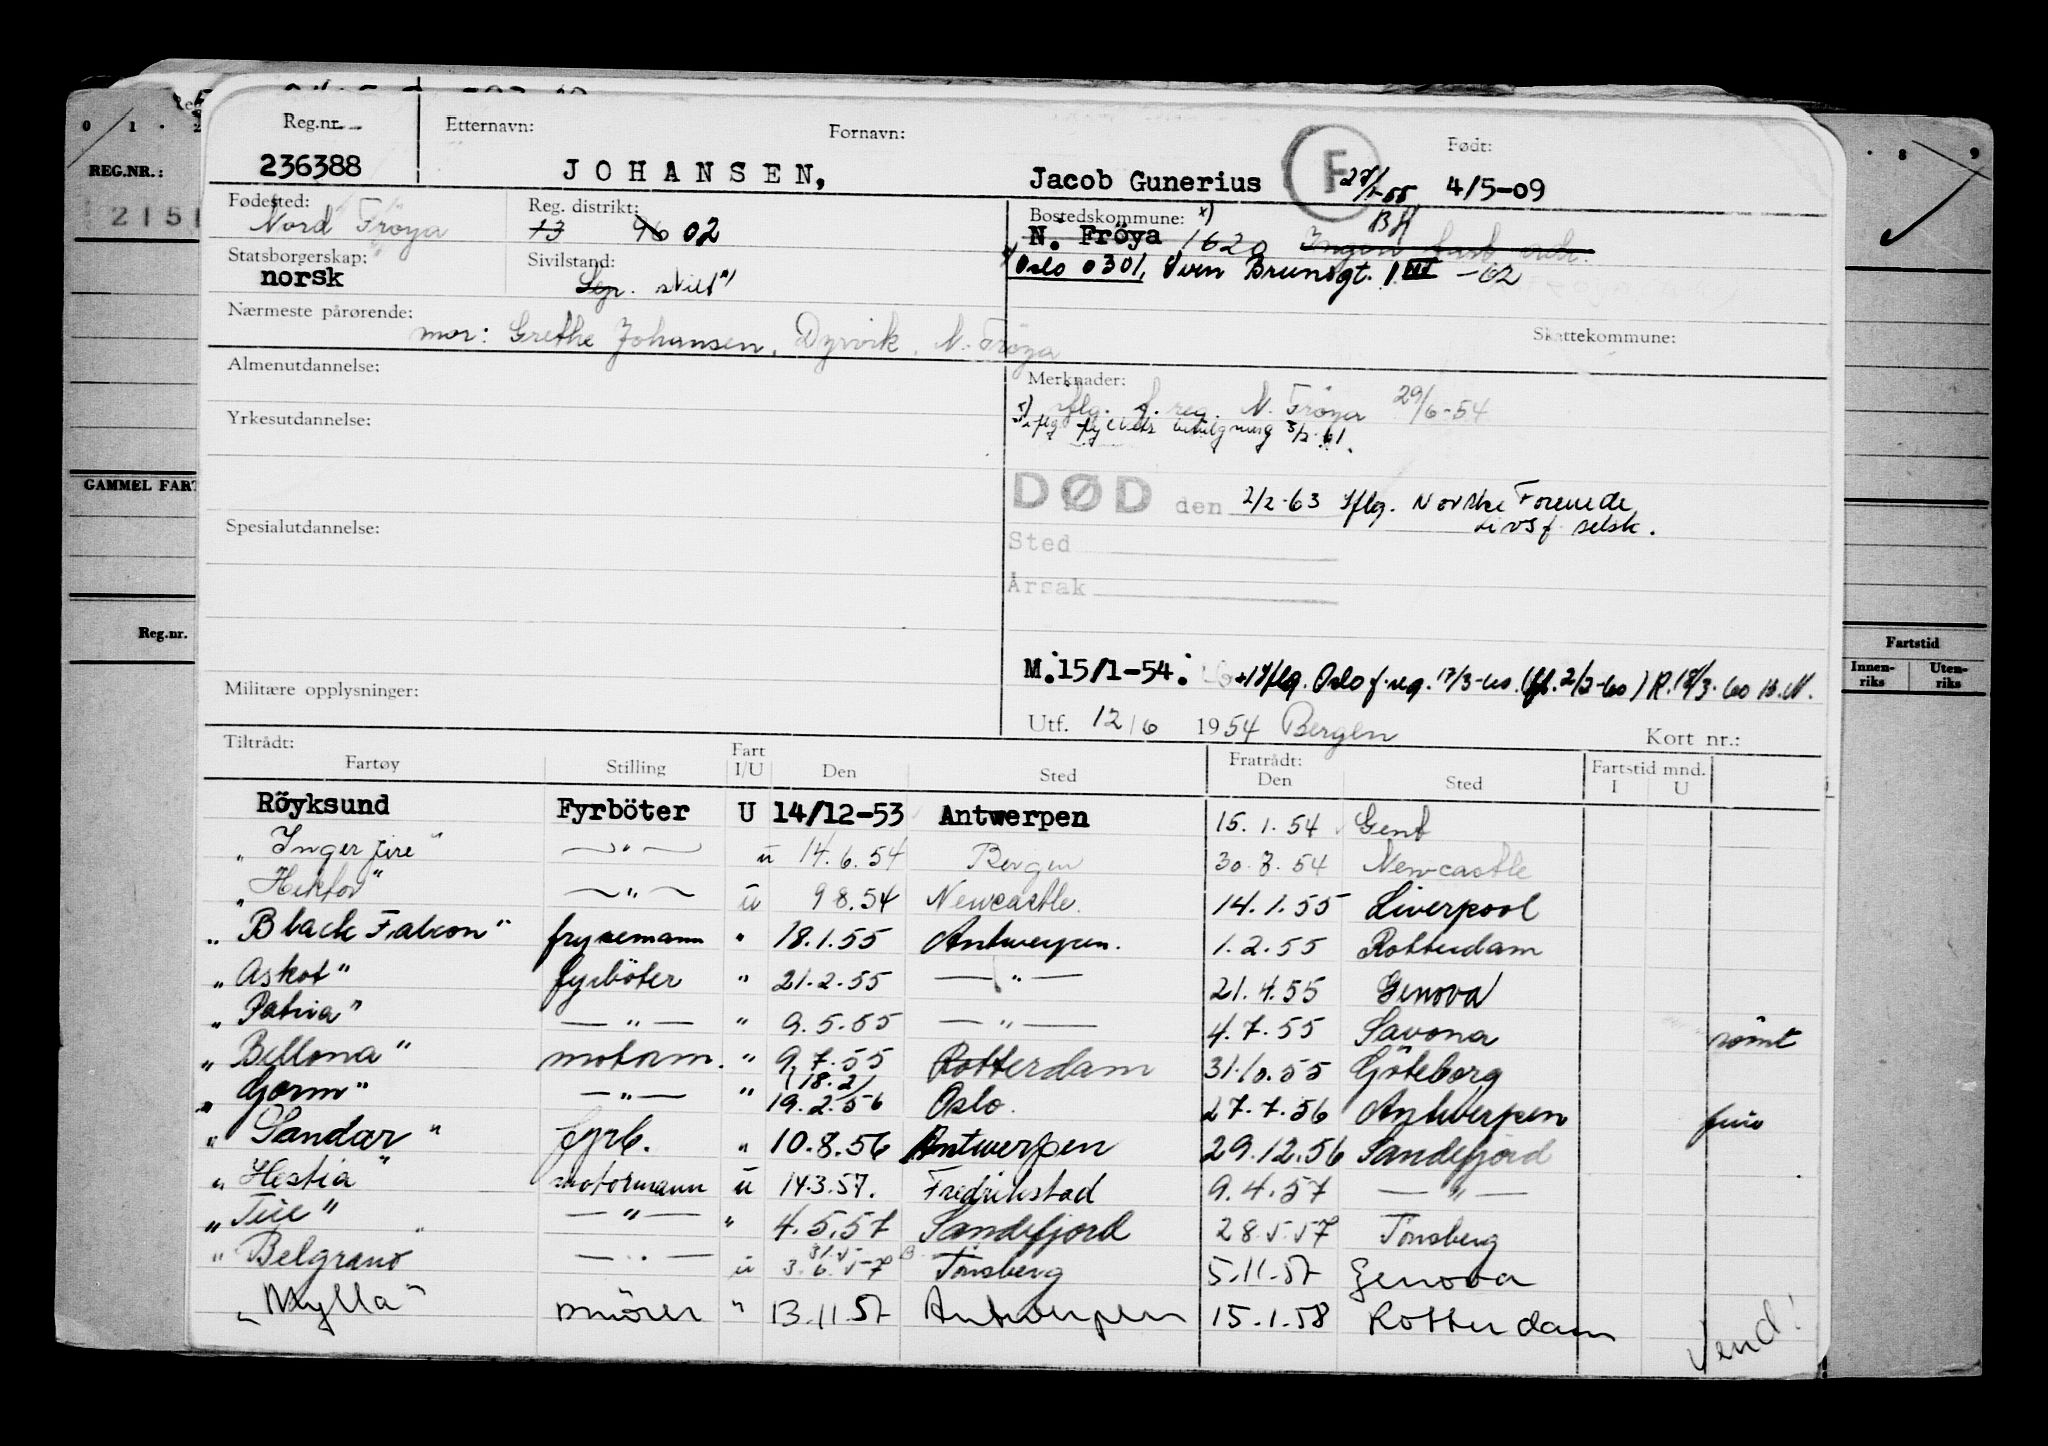 Reg.nr. Etternavn: Fornavn: Født:
236388 JOHANSEN, Jacob Gunerius F 27/1-55 4/5-09
Fødested: Reg. distrikt: Bostedskommune: x)
Nord Fröya 13 96 02 N. Fröya 1620 Ingen fast adr.
Statsborgerskap: Sivilstand: Oslo 0301, Sven Brunsgt. 1 III -62
norsk Sep. skilt
Nærmeste pårørende: Skattekommune:
mor: Grethe Johansen, Dyrvik, N. Fröya
Almenutdannelse: Merknader:
iflg. f. reg. N. Fröya 29/6-54
Yrkesutdannelse:
DØD den 2/2-63 iflg. Norske Forenede
Livsf. selsk.
Spesialutdannelse:
Sted
Årsak
M.15/1-54. iflg. Oslo f. reg. 17/3-60. (fl. 2/2-60) R. 18/3-60 B.N.
Militære opplysninger:
Utf. 12/6 1954 Bergen Kort nr.:
Tiltrådt: Fratrådt:
Fartøy Stilling Fart I/U Den Sted Den Sted Fartstid mnd. I U
Röyksund Fyrböter U 14/12-53 Antwerpen 15.1.54 Gent
„Inger " — " — u 14.6.54 Bergen 30.7.54 Newcastle
„Hektor" — " — u 9 8.54 Newcastle. 14.1.55 Liverpool
„Black Falcon" frysemann " 18.1.55 Antwerpen. 1.2.55 Rotterdam
„Askot" fyrböter " 21.2.55 — " — 21.4.55 Genova
„Patria" — " — " 9.5.55 — " — 4.7.55 Savona römt
„Bellona" motorm. " 9.7.55 Rotterdam 31.10.55 Göteborg
„Gorm" — " — " (18.2) 19.2.56 Oslo. 27.7.56 Antwerpen
„Sandar" fyrb. " 10.8.56 Antwerpen 29.12.56 Sandefjord
„Hestia" motormann u 14.3.57. Fredrikstad 9.4.57 — " —
„ " — " — " 4.5.57 Sandefjord 28.5.57 Tönsberg
„Belgrano" — " — u 31.5 3.6.57 Tönsberg 5.11.57 Genova
„Mylla" smörer " 13.11.57 Antwerpen 15.1.58 Rotterdam
Vend!
0 1 2
REG.NR.:
2151
GAMMEL FART
Reg.nr.
8 9
Fartstid
Innen-riks Uten-riks